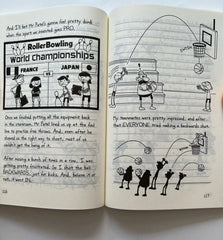 And I'll bet Mr. Patel's gonna feel pretty dumb
when the sport we invented goes PRO.
RollerBowling
World Championships
FRANCE
VS
JAPAN
Once we finished putting all the equipment back
in the storeroom, Mr. Patel lined us up at the foul
line to practice free throws. And even after he
showed us the right way to shoot, most of us
couldn't get the hang of it.
After missing a bunch of times in a row, I was
getting pretty frustrated. So I shot the ball
BACKWARDS, just for kicks. And, believe it or
not, it went IN.
My teammates were pretty impressed, and after
that EVERYONE tried making a backwards shot.